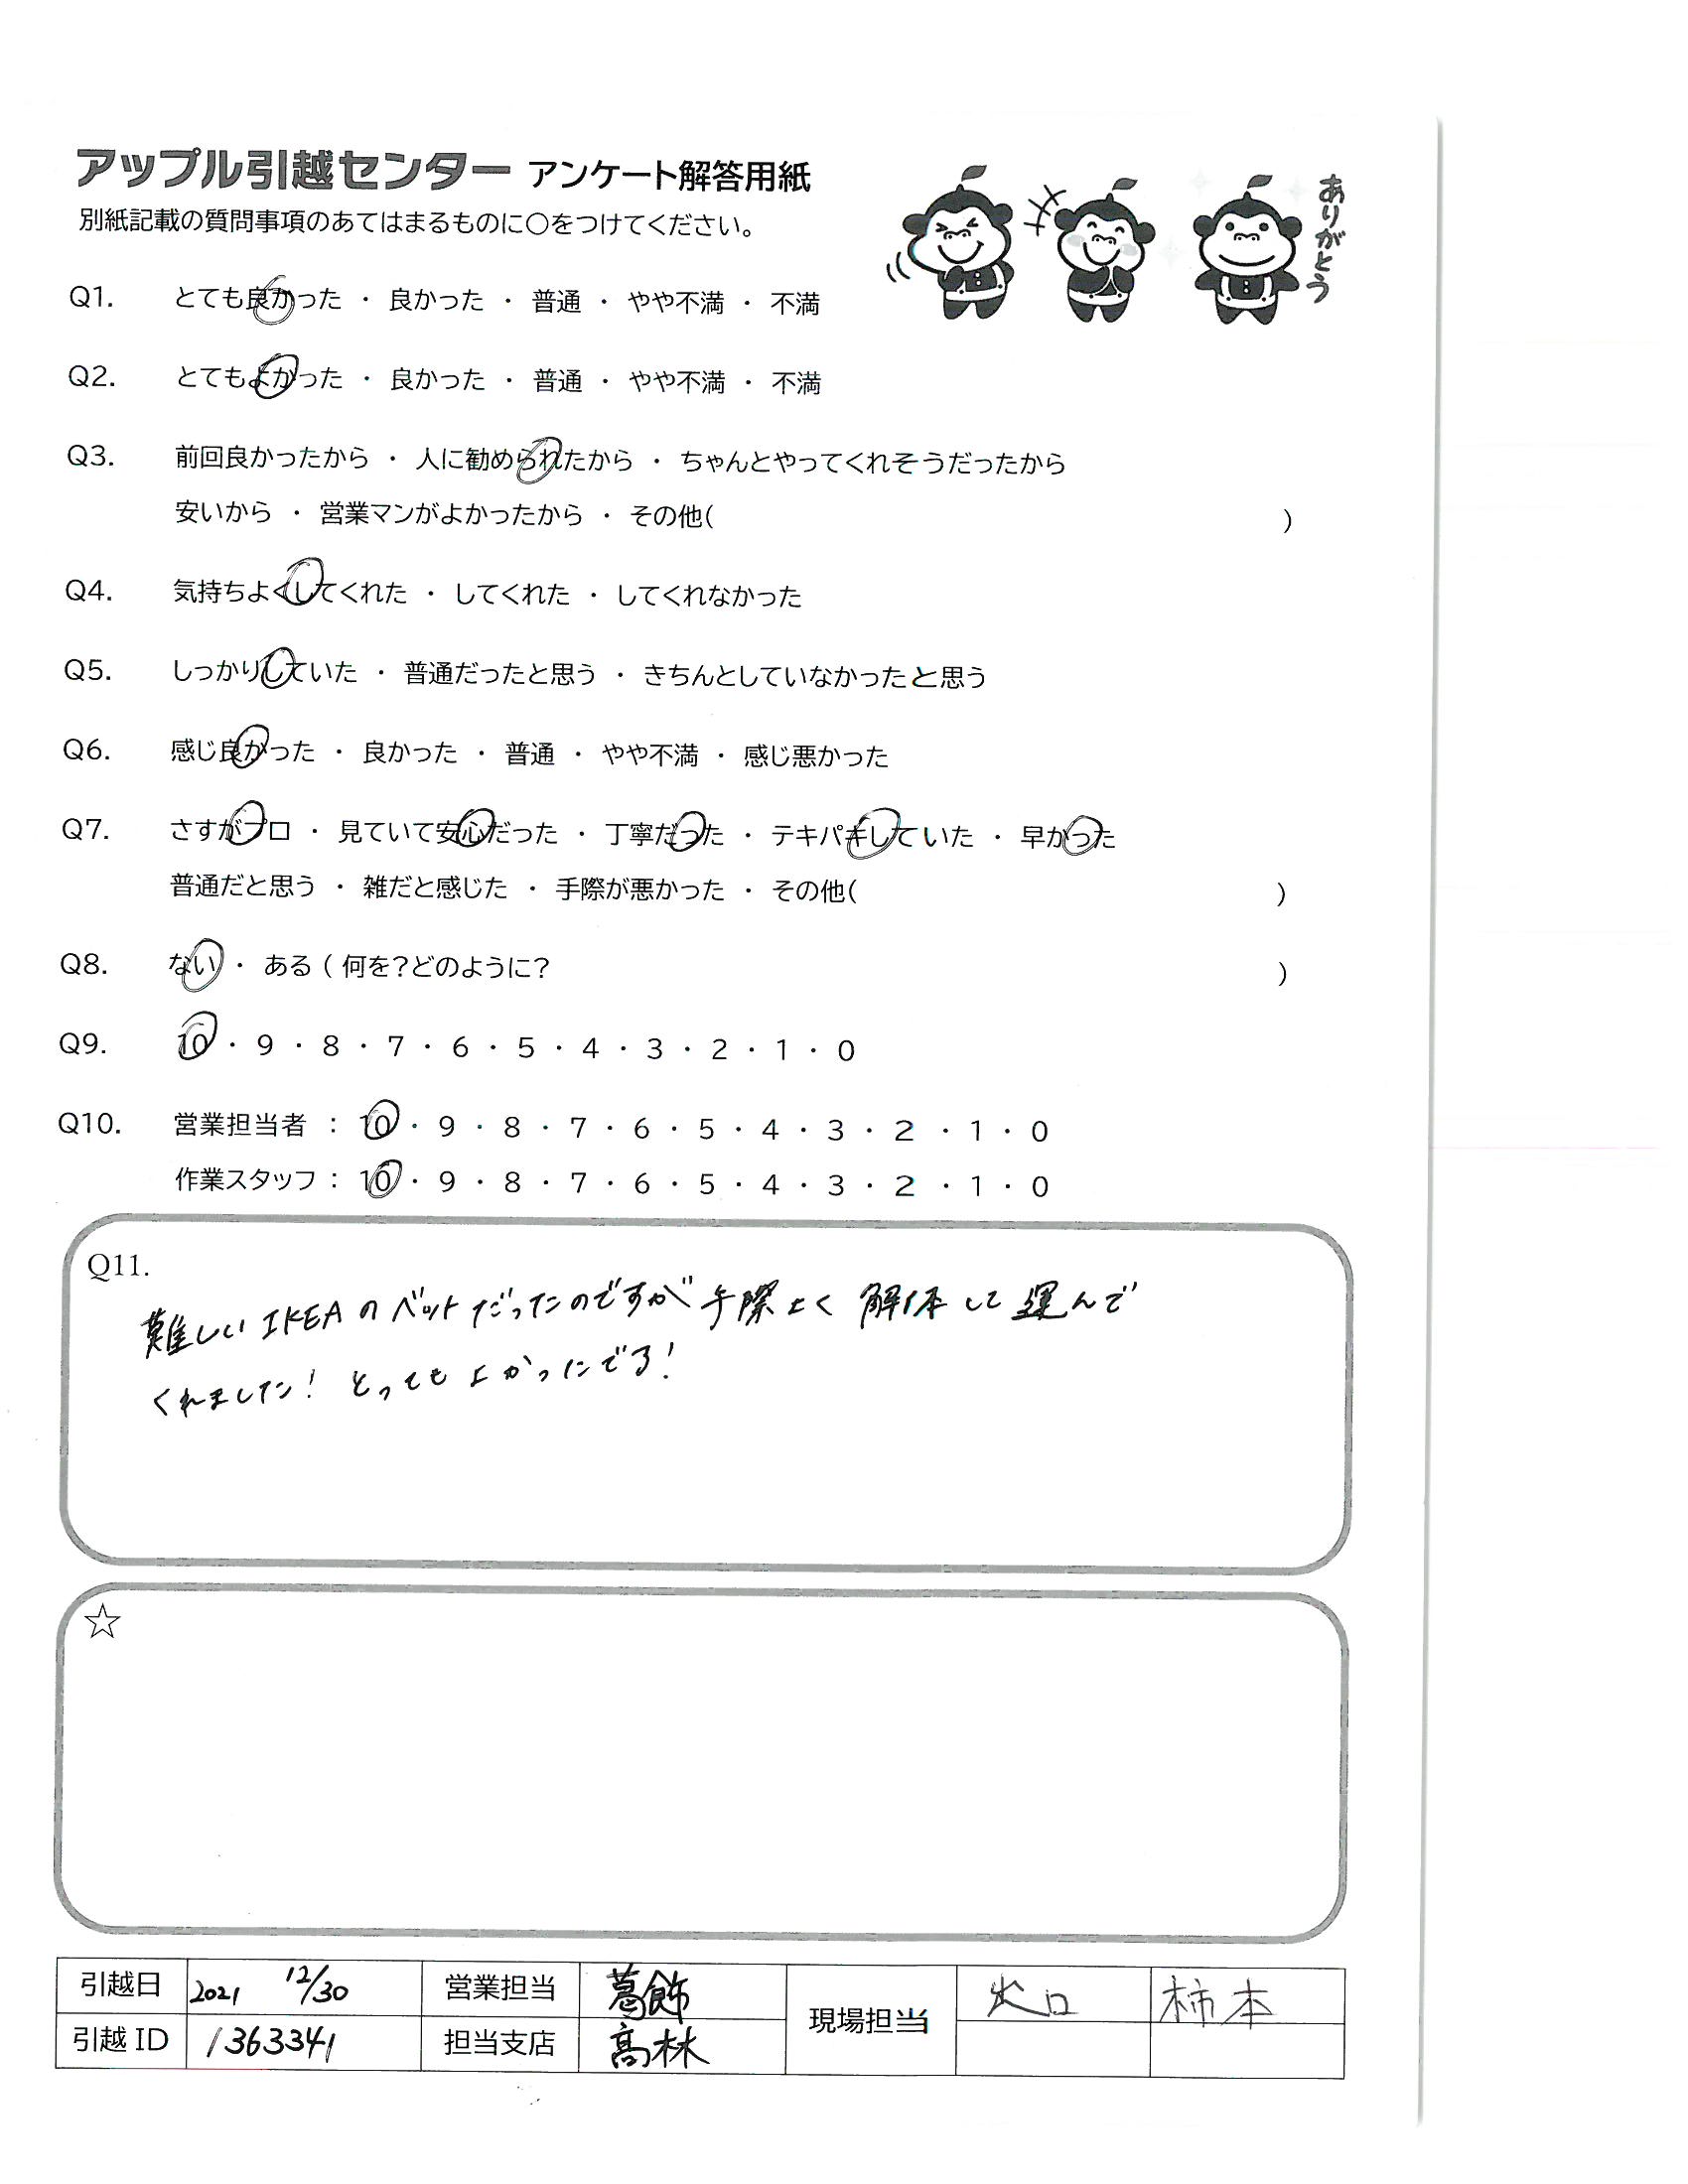 アップル引越センター アンケート解答用紙
別紙記載の質問事項のあてはまるものに○をつけてください。
ありがとう
Q1. とても良かった ・ 良かった ・ 普通 ・ やや不満 ・ 不満
Q2. とてもよかった ・ 良かった ・ 普通 ・ やや不満 ・ 不満
Q3. 前回良かったから ・ 人に勧められたから ・ ちゃんとやってくれそうだったから
安いから ・ 営業マンがよかったから ・ その他( )
Q4. 気持ちよくしてくれた ・ してくれた ・ してくれなかった
Q5. しっかりしていた ・ 普通だったと思う ・ きちんとしていなかったと思う
Q6. 感じ良かった ・ 良かった ・ 普通 ・ やや不満 ・ 感じ悪かった
Q7. さすがプロ ・ 見ていて安心だった ・ 丁寧だった ・ テキパキしていた ・ 早かった
普通だと思う ・ 雑だと感じた ・ 手際が悪かった ・ その他( )
Q8. ない ・ ある ( 何を?どのように? )
Q9. 10 ・ 9 ・ 8 ・ 7 ・ 6 ・ 5 ・ 4 ・ 3 ・ 2 ・ 1 ・ 0
Q10. 営業担当者 : 10 ・ 9 ・ 8 ・ 7 ・ 6 ・ 5 ・ 4 ・ 3 ・ 2 ・ 1 ・ 0
作業スタッフ : 10 ・ 9 ・ 8 ・ 7 ・ 6 ・ 5 ・ 4 ・ 3 ・ 2 ・ 1 ・ 0
Q11.
難しいIKEAのベットだったのですが手際よく解体して運んで
くれました! とってもよかったでる!
☆
引越日 2021 12/30 営業担当 葛飾 現場担当 柿本
引越ID 1363341 担当支店 高林